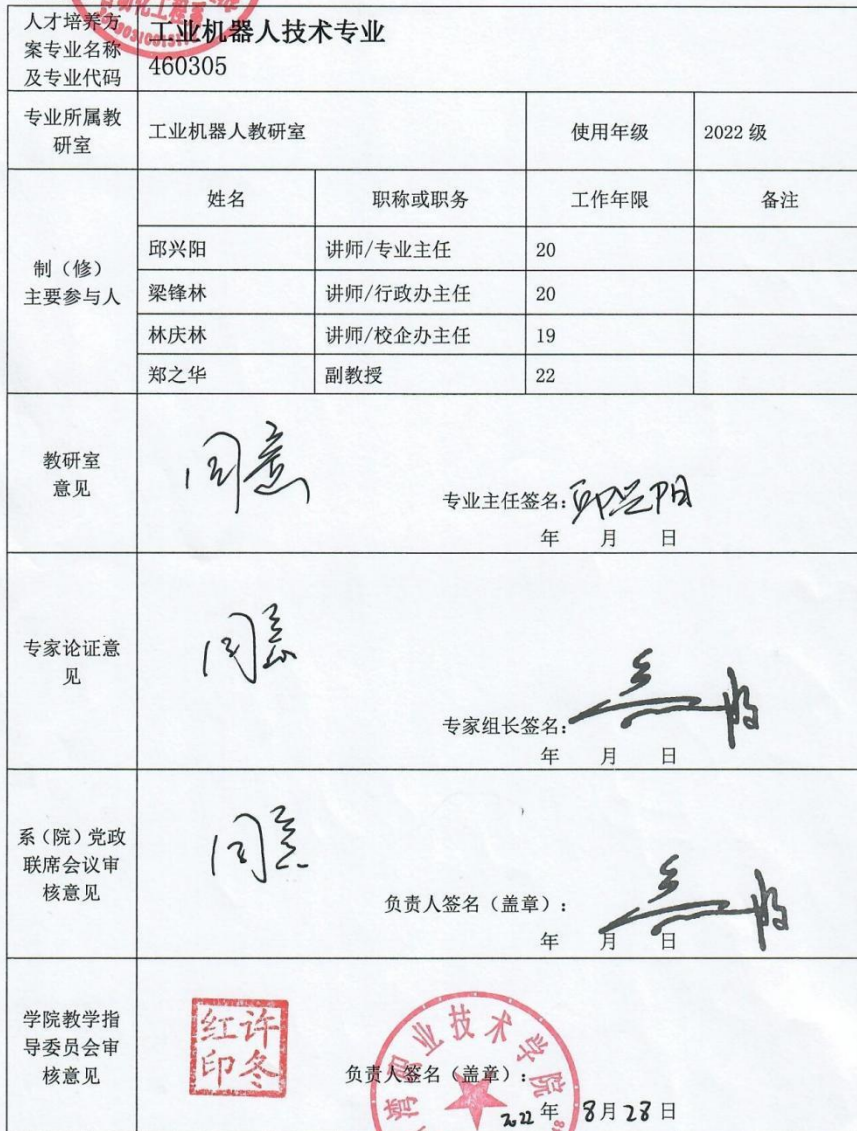 自动化工程系
人才培养方
案专业名称
及专业代码
工业机器人技术专业
460305
专业所属教
研室
工业机器人教研室
使用年级
2022 级
制（修）
主要参与人
姓名 职称或职务 工作年限 备注
邱兴阳 讲师/专业主任 20
梁锋林 讲师/行政办主任 20
林庆林 讲师/校企办主任 19
郑之华 副教授 22
教研室
意见
同意
专业主任签名：邱兴阳
年 月 日
专家论证意
见
同意
专家组长签名：
年 月 日
系（院）党政
联席会议审
核意见
同意
负责人签名（盖章）：
年 月 日
学院教学指
导委员会审
核意见
许冬
红印
职业技术学院
负责人签名（盖章）：
2022 年 8月28日